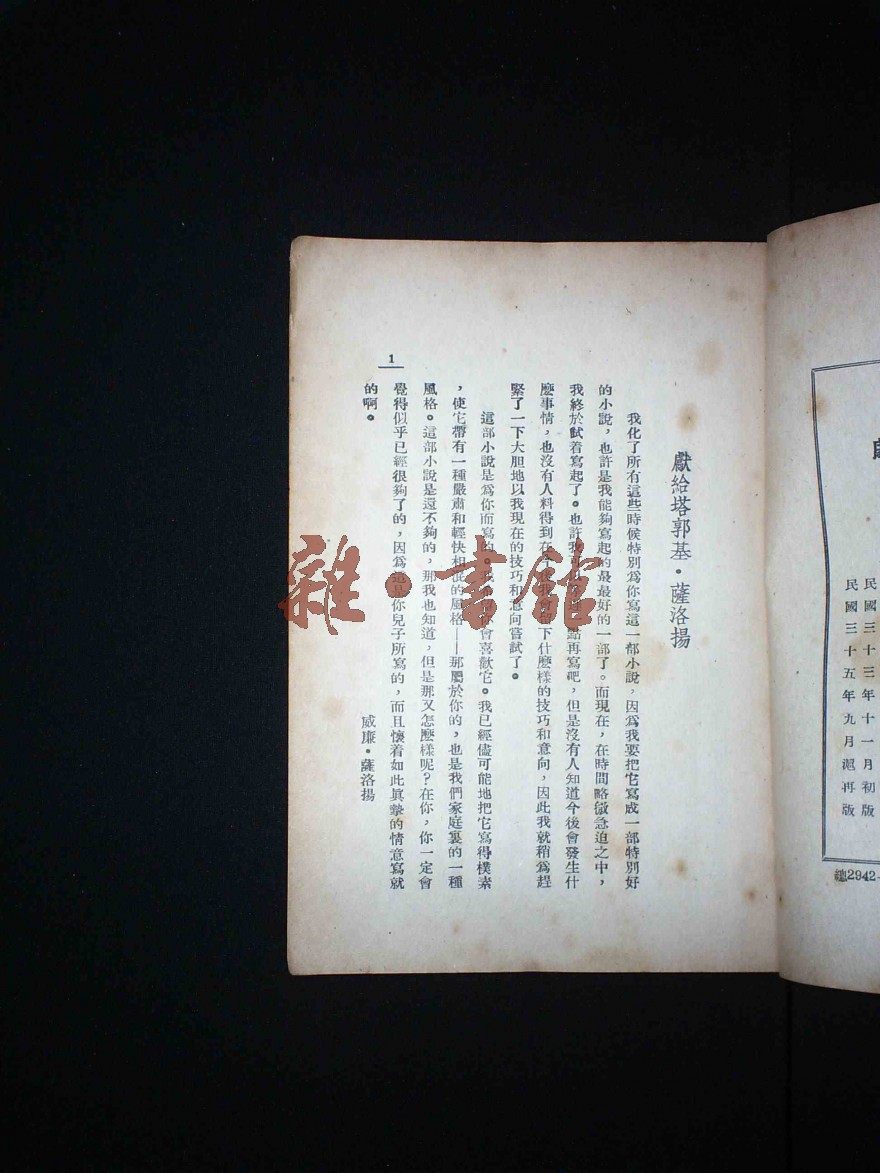 獻給塔郭基·薩洛揚
我化了所有這些時候特別為你寫這一部小說，因為我要把它寫成一部特別好
的小說，也許是我能夠寫起的最最好的一部了。而現在，在時間略微急迫之中，
我終於試着寫起了。也許我可以 點再寫吧，但是沒有人知道今後會發生什
麽事情，也沒有人料得到在今後我會留下什麽樣的技巧和意向，因此我就稍為趕
緊了一下大胆地以我現在的技巧和意向嘗試了。
這部小說是為你而寫的。我 你會喜歡它。我已經儘可能地把它寫得樸素
，使它帶有一種嚴肅和輕快相混的風格——那屬於你的，也是我們家庭裏的一種
風格。這部小說是還不夠的，那我也知道，但是那又怎麽樣呢？在你，你一定會
覺得似乎已經很夠了的，因為這是你兒子所寫的，而且懷着如此眞摯的情意寫就
的啊。
威廉·薩洛揚
1
民國三十三年十一月初版
民國三十五年九月滬再版
2942
雜·書館